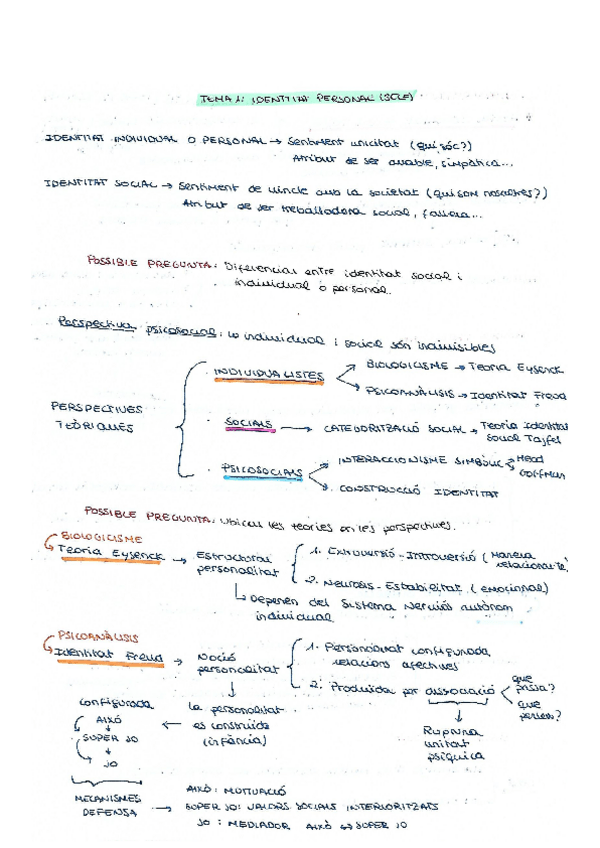 TEMA 1: IDENTITAT PERSONAL (SELF)
IDENTITAT INDIVIDUAL O PERSONAL → Sentiment unicitat (qui sóc?)
Atribut de ser amable, simpàtica...
IDENTITAT SOCIAL → Sentiment de vincle amb la societat (qui som nosaltres?)
Atribut de ser treballadora social, fallera...
POSSIBLE PREGUNTA: Diferencias entre identitat social i
individual o personal.
Perspectiva psicosocial: lo individual i social són indivisibles
PERSPECTIVES TEÒRIQUES
INDIVIDUALISTES
BIOLOGICISME → Teoria Eysenck
PSICOANÀLISIS → Identitat Freud
SOCIALS → CATEGORITZACIÓ SOCIAL → Teoria Identitat
Social Tajfel
PSICOSOCIALS
INTERACCIONISME SIMBÒLIC
Mead
Goffman
CONSTRUCCIÓ IDENTITAT
POSSIBLE PREGUNTA: Ubicar les teories en les perspectives.
BIOLOGICISME
Teoria Eysenck → Estructura
personalitat
1. Extroversió - Introversió (Manera
relacionar-te)
2. Neurosis - Estabilitat (emocional)
↳ Depenen del Sistema Nerviós autònom
individual
PSICOANÀLISIS
Identitat Freud → Noció
personalitat
1. Personalitat configurada
relacions afectives
2. Produïda per associació
que
pensa?
que
Ruptura
unitat
psíquica
la personalitat
es construïda
(infància)
configurada
AIXÓ
SUPER JO
JO
MECANISMES
DEFENSA →
AIXÓ: MOTIVACIÓ
SUPER JO: VALORS SOCIALS INTERIORITZATS
JO: MEDIADOR AIXÓ ↔ SUPER JO